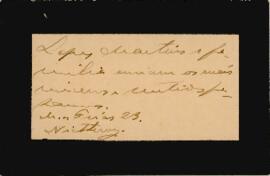 Lopes Martins e fa-
milia enviam os mais
sinceros sentidos pe-
zames.
23.
Nictheroy.